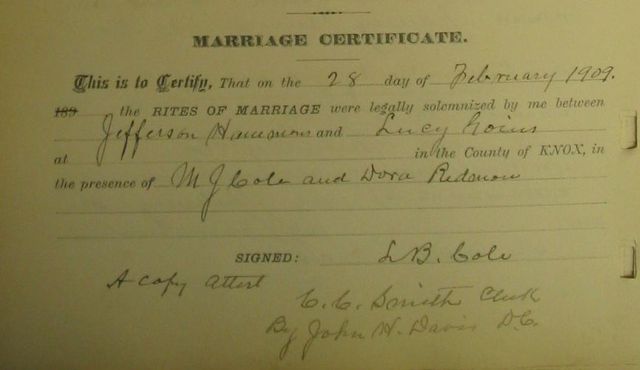 MARRIAGE CERTIFICATE.
This is to Certify, That on the 28 day of February 1909.
189 the RITES OF MARRIAGE were legally solemnized by me between
Jefferson Hammons and Lucy Goins
at in the County of KNOX, in
the presence of M J Cole and Dora Redmon
SIGNED: L B. Cole
A copy attest
C. C. Smith Clerk
By John H. Davis D.C.